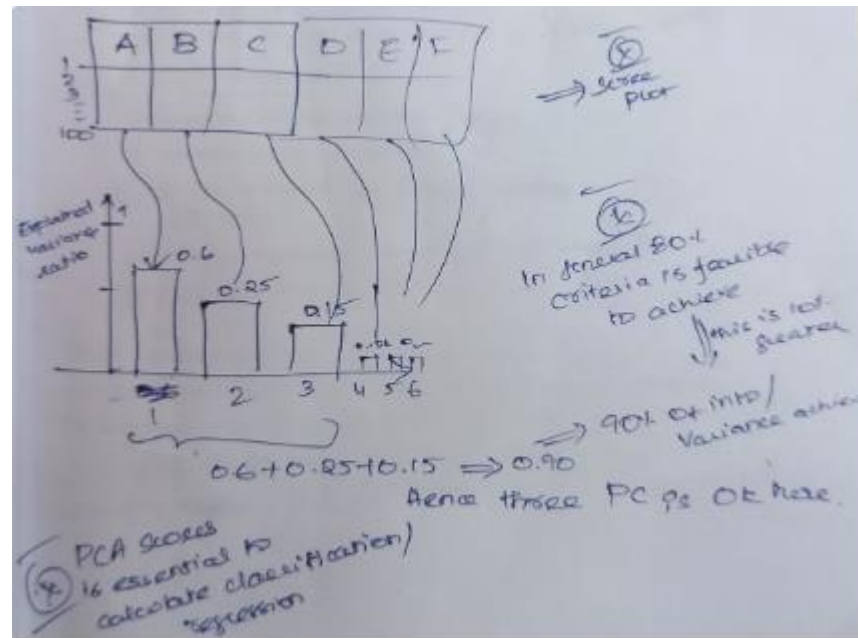 A B C D E F
1
2
3
100
⊗
⇒ scree
plot
Explained
variance
ratio
1
0.6
0.25
0.15
In general 80%
criteria is feasible
to achieve
this is 10%
greater
1 2 3 4 5 6
⇒ 90% of info/
Variance achie
0.6+0.25+0.15 ⇒ 0.90
Hence three PC is OK here.
PCA scores
is essential to
calculate classification/
regression